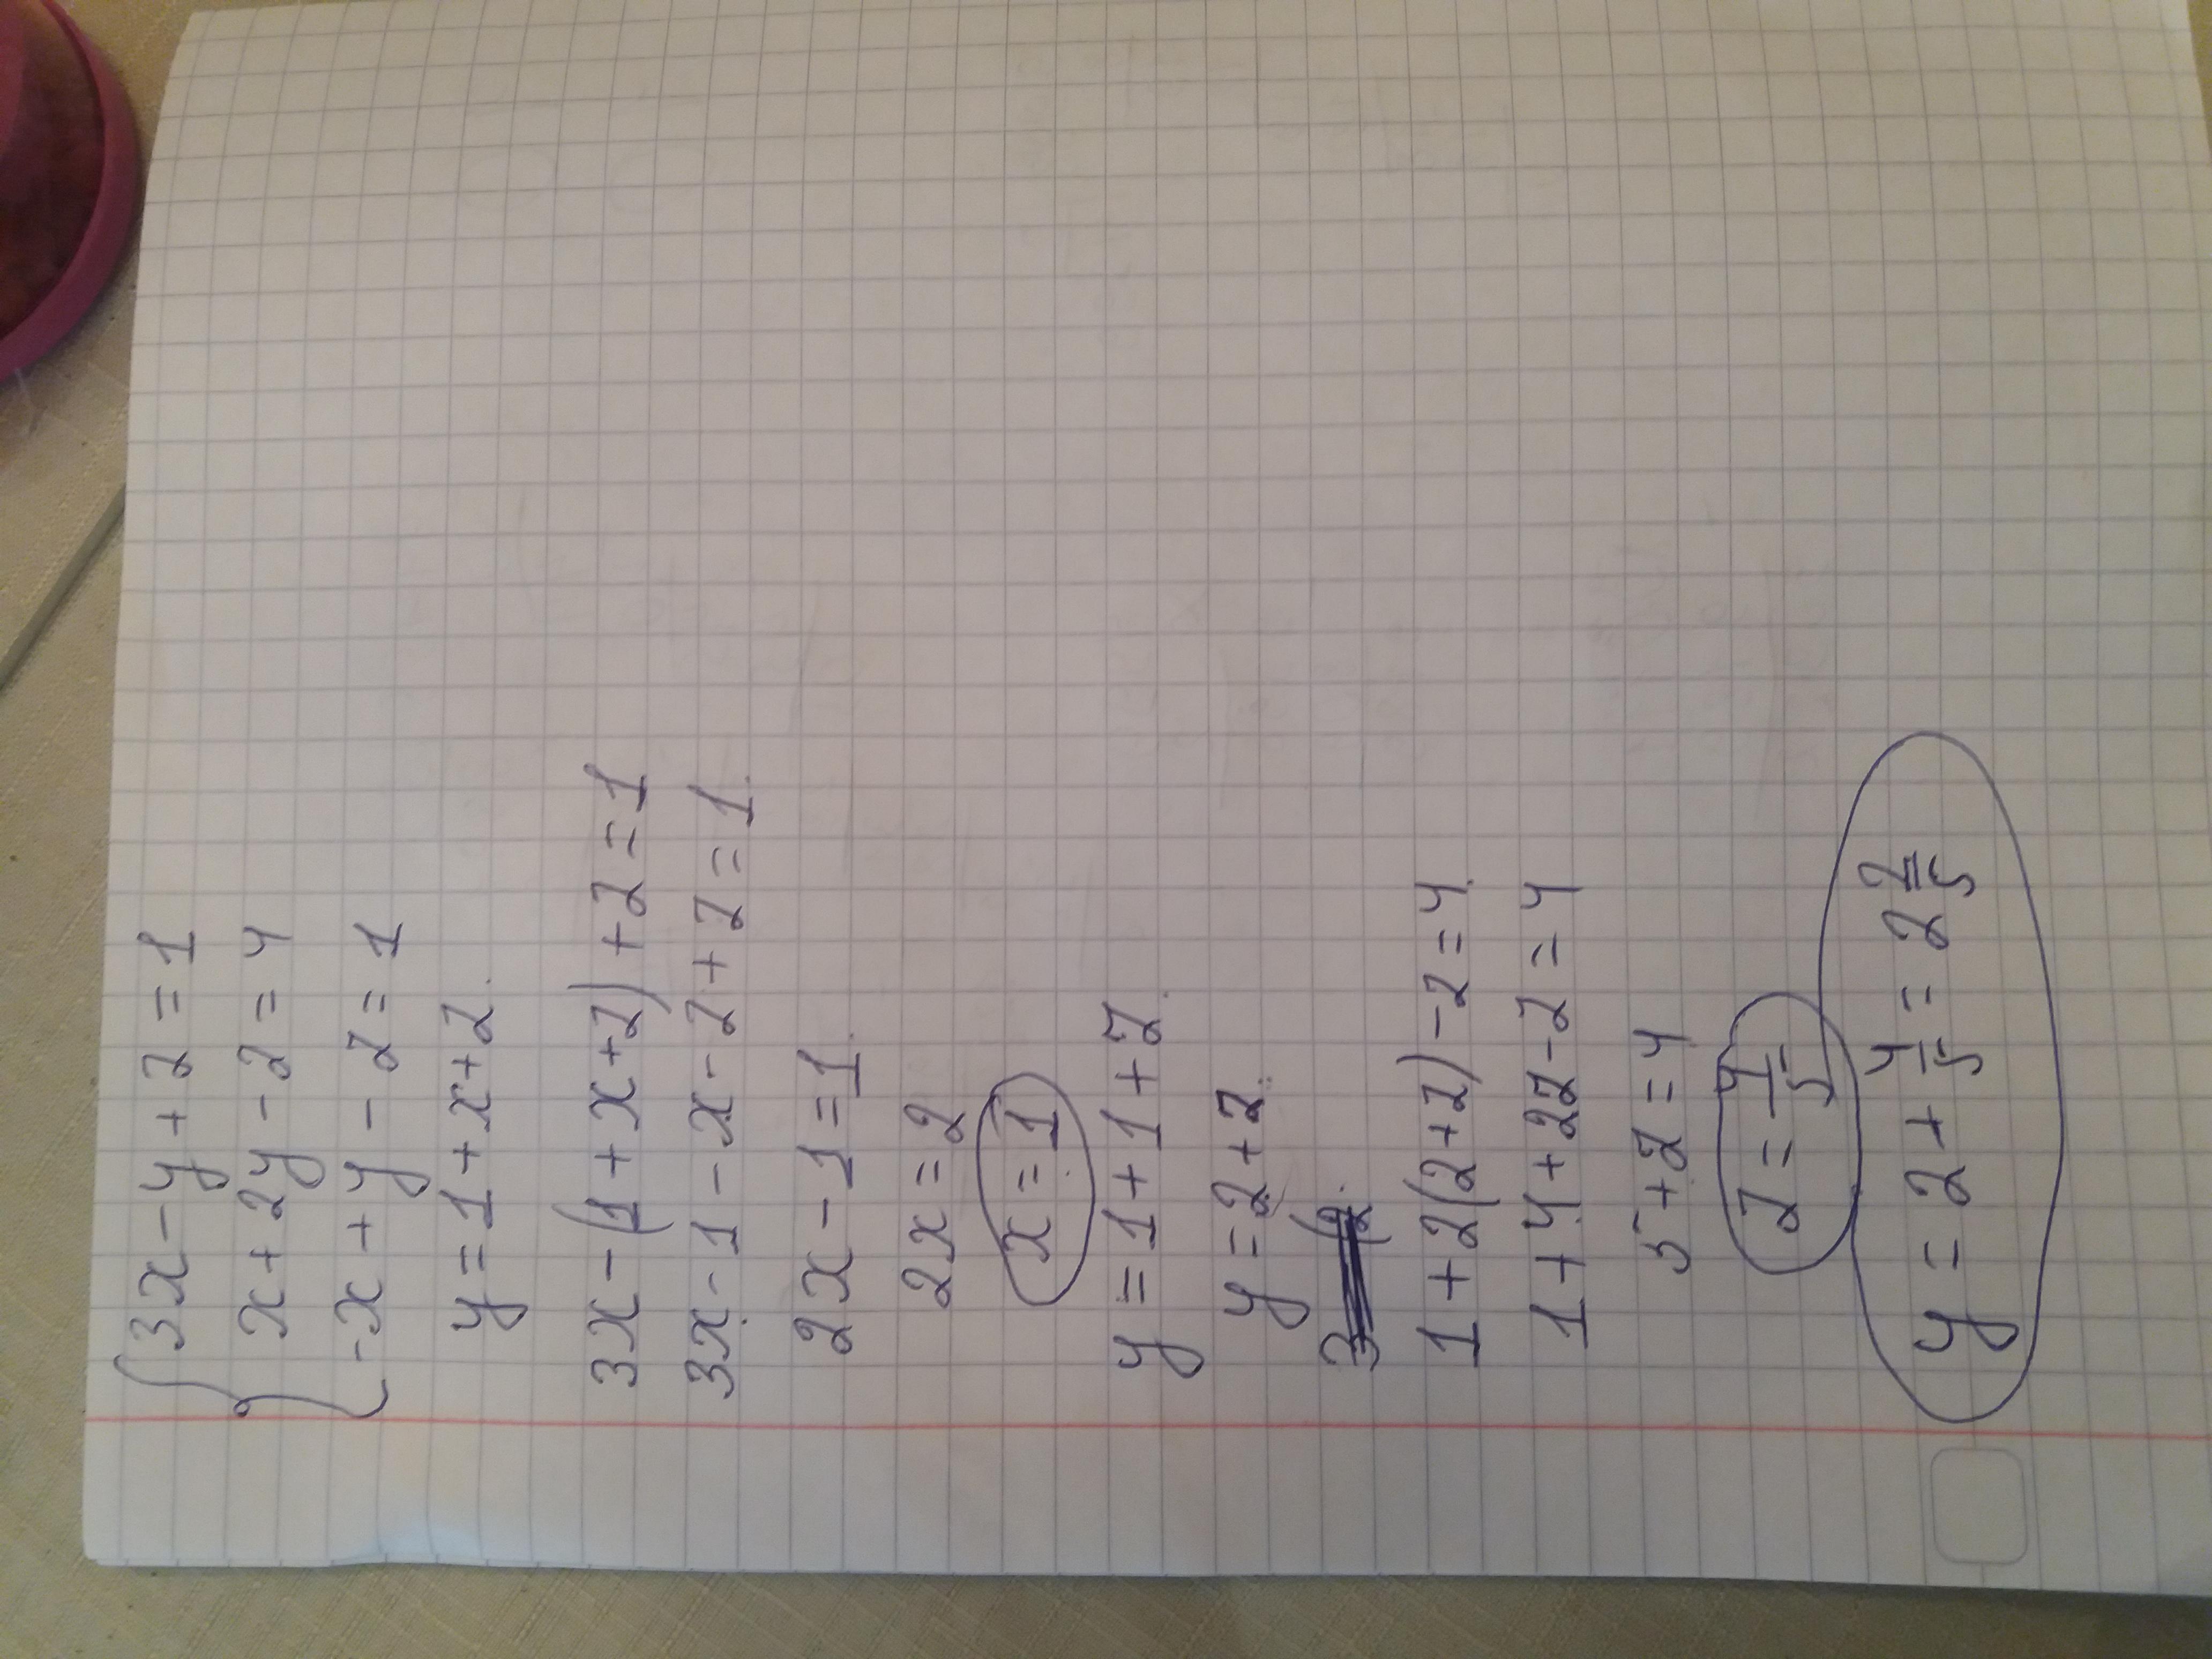 3x-y+z=1
x+2y-z=4
-x+y-z=1
y=1+x+z.
3x-(1+x+z)+z=1
3x-1-x-z+z=1.
2x-1=1.
2x=2
x=1
y=1+1+z.
y=2+z.
1+2(2+z)-z=4.
1+4+2z-z=4
5+z=4
z=4/5
y=2+4/5=2 2/5